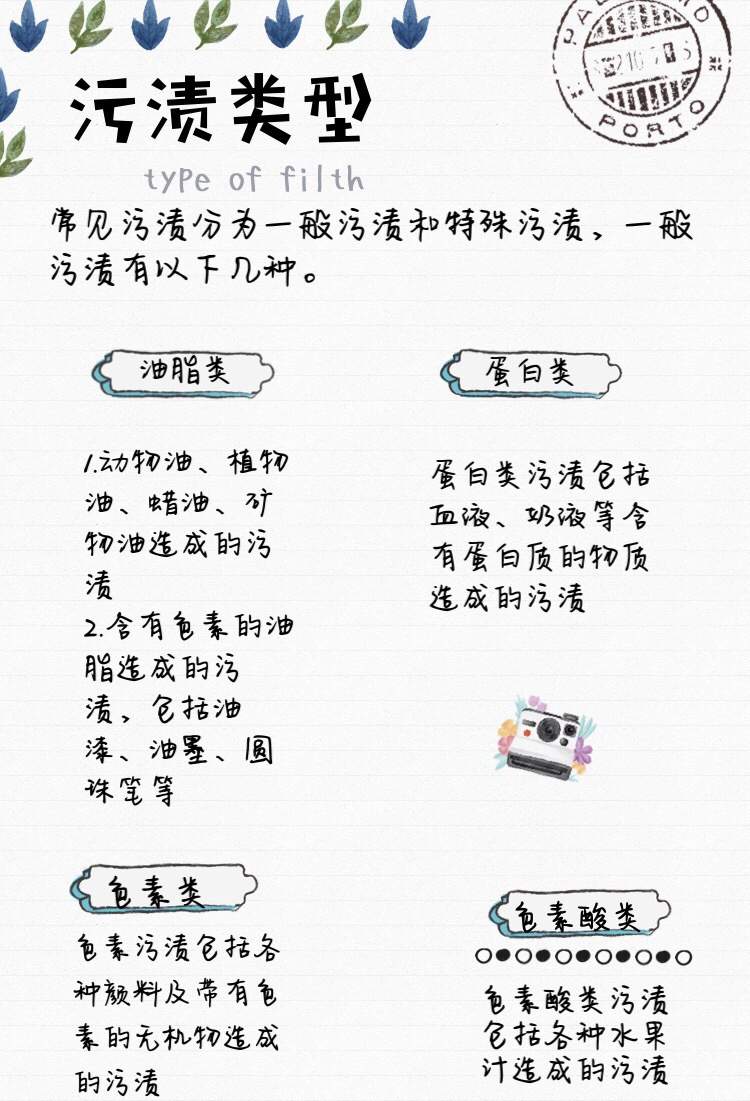 污渍类型
type of filth
常见污渍分为一般污渍和特殊污渍、一般
污渍有以下几种。
油脂类
1.动物油、植物
油、蜡油、矿
物油造成的污
渍
2.含有色素的油
脂造成的污
渍、包括油
漆、油墨、圆
珠笔等
蛋白类
蛋白类污渍包括
血液、奶液等含
有蛋白质的物质
造成的污渍
色素类
色素污渍包括各
种颜料及带有色
素的无机物造成
的污渍
色素酸类
色素酸类污渍
包括各种水果
汁造成的污渍
PORTO